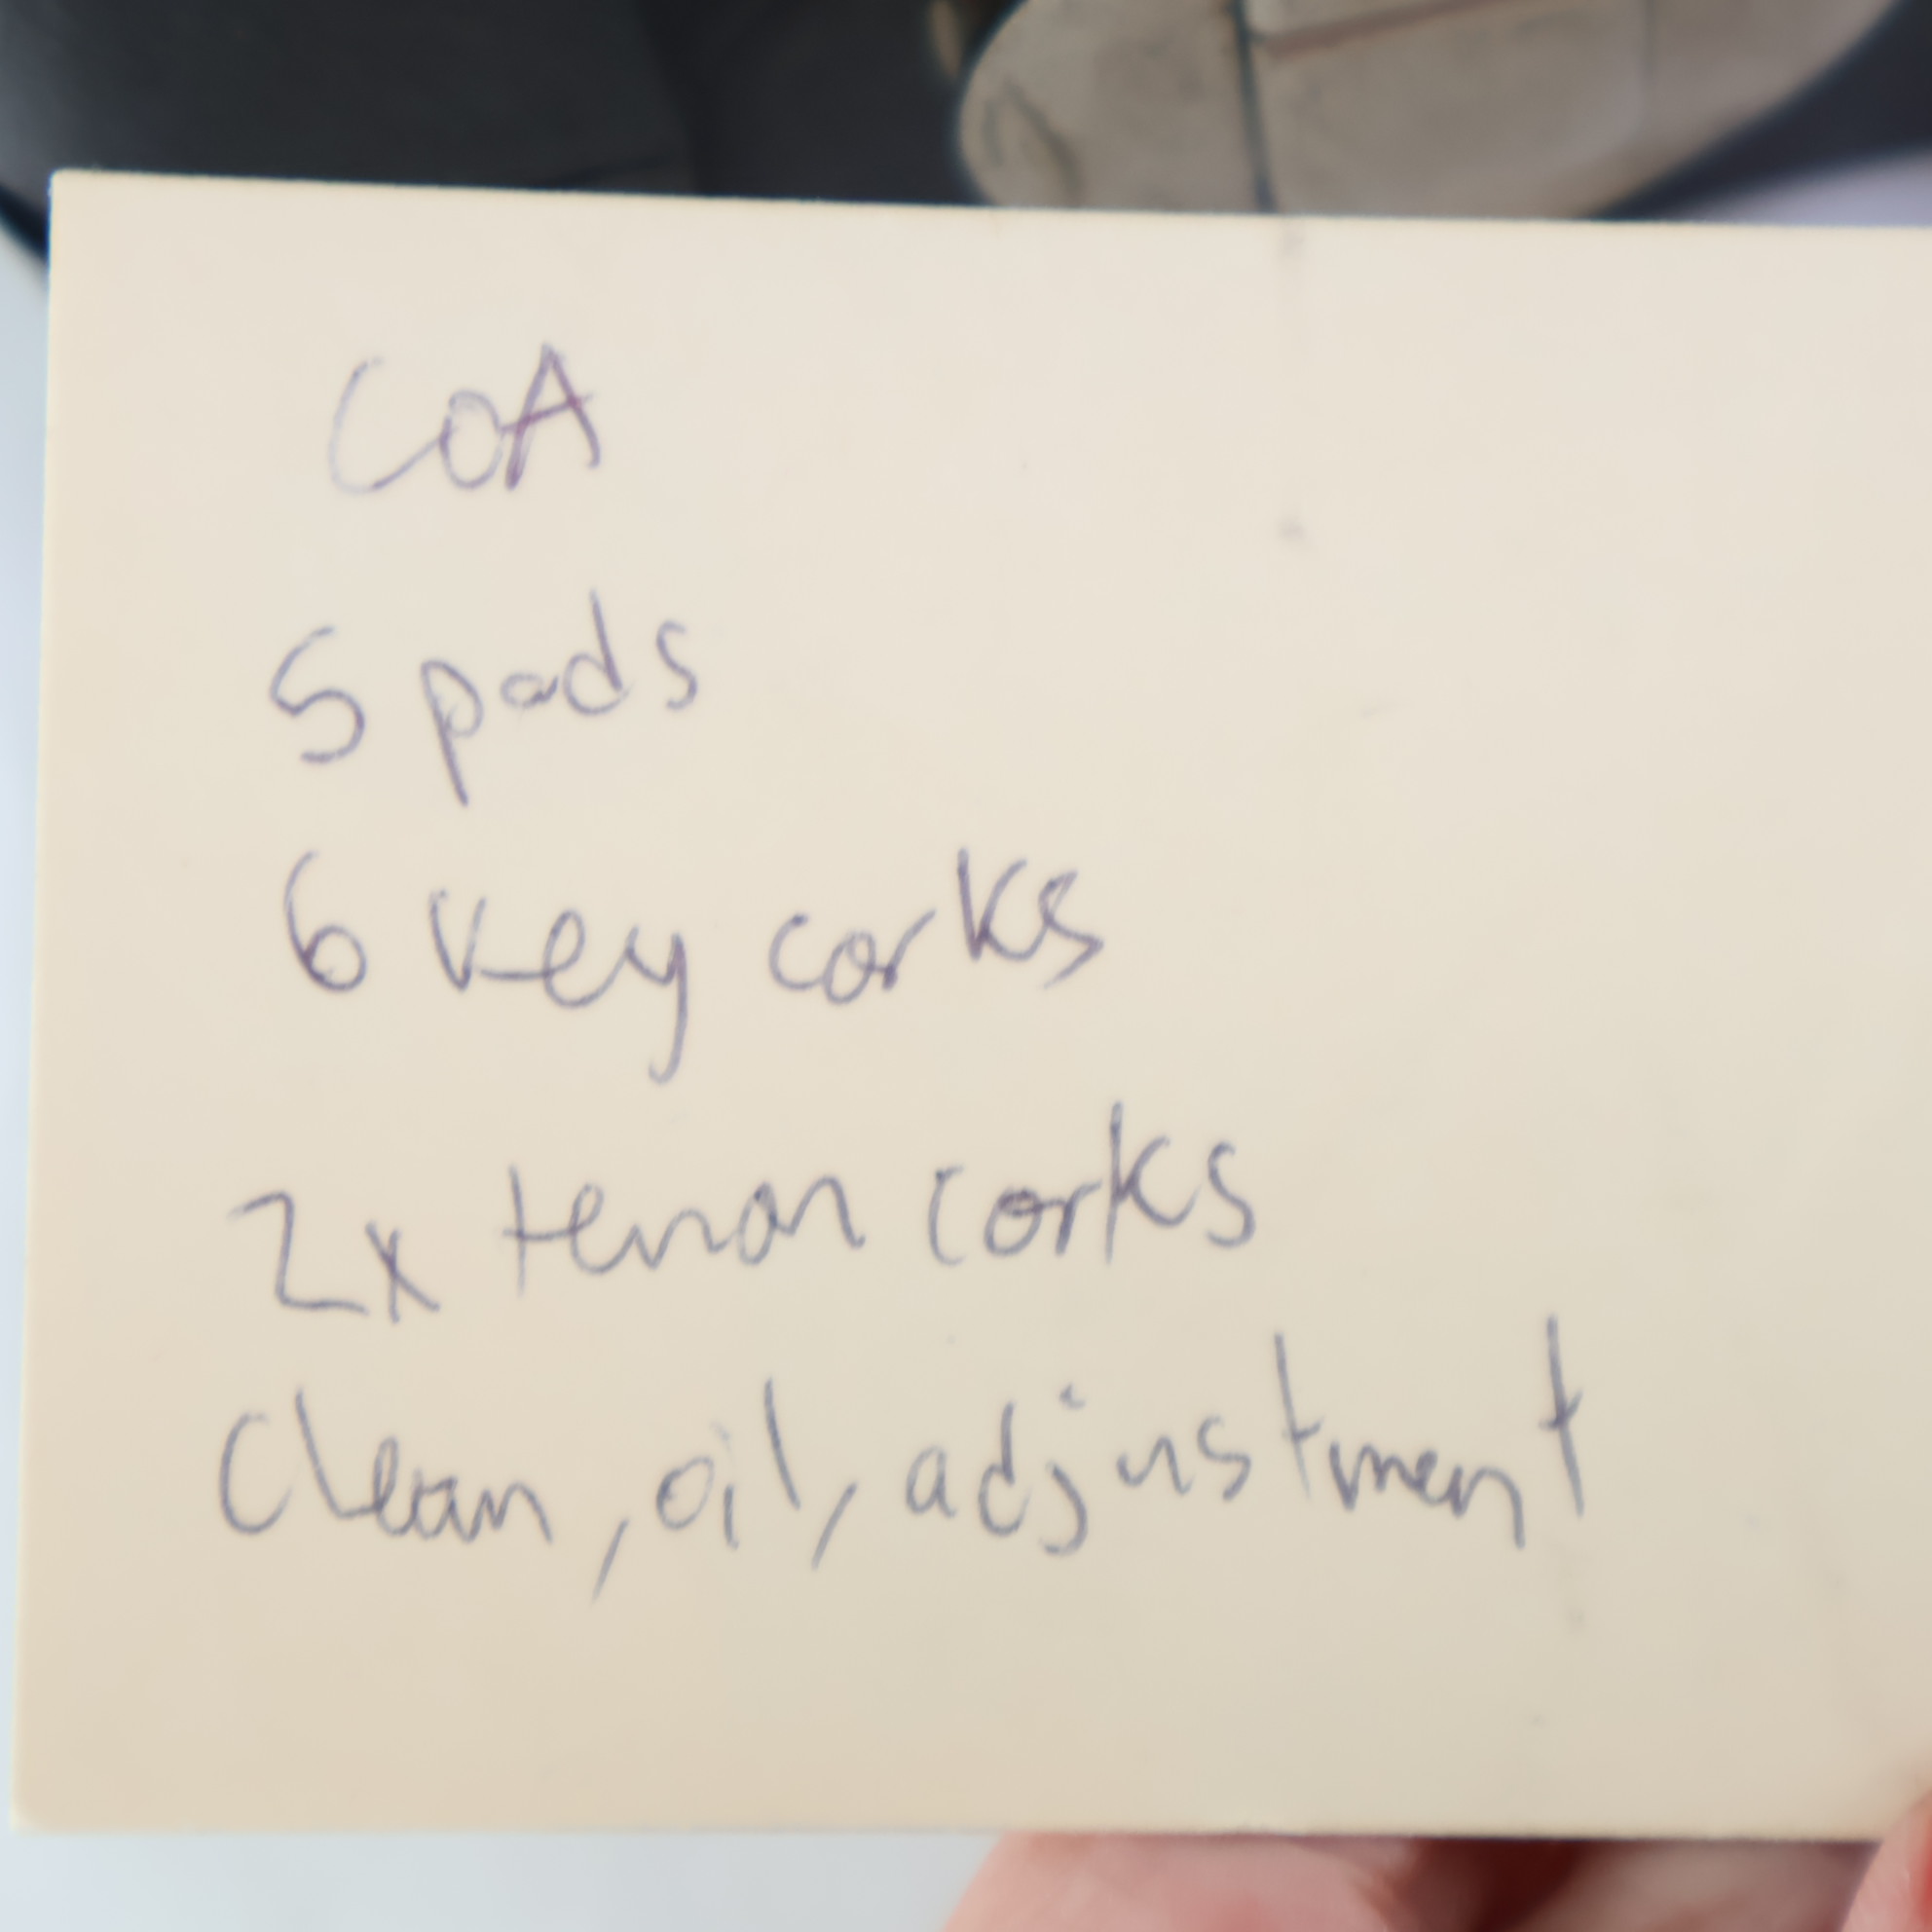 COA
5 pads
6 key corks
2x tenon corks
Clean, oil, adjustment